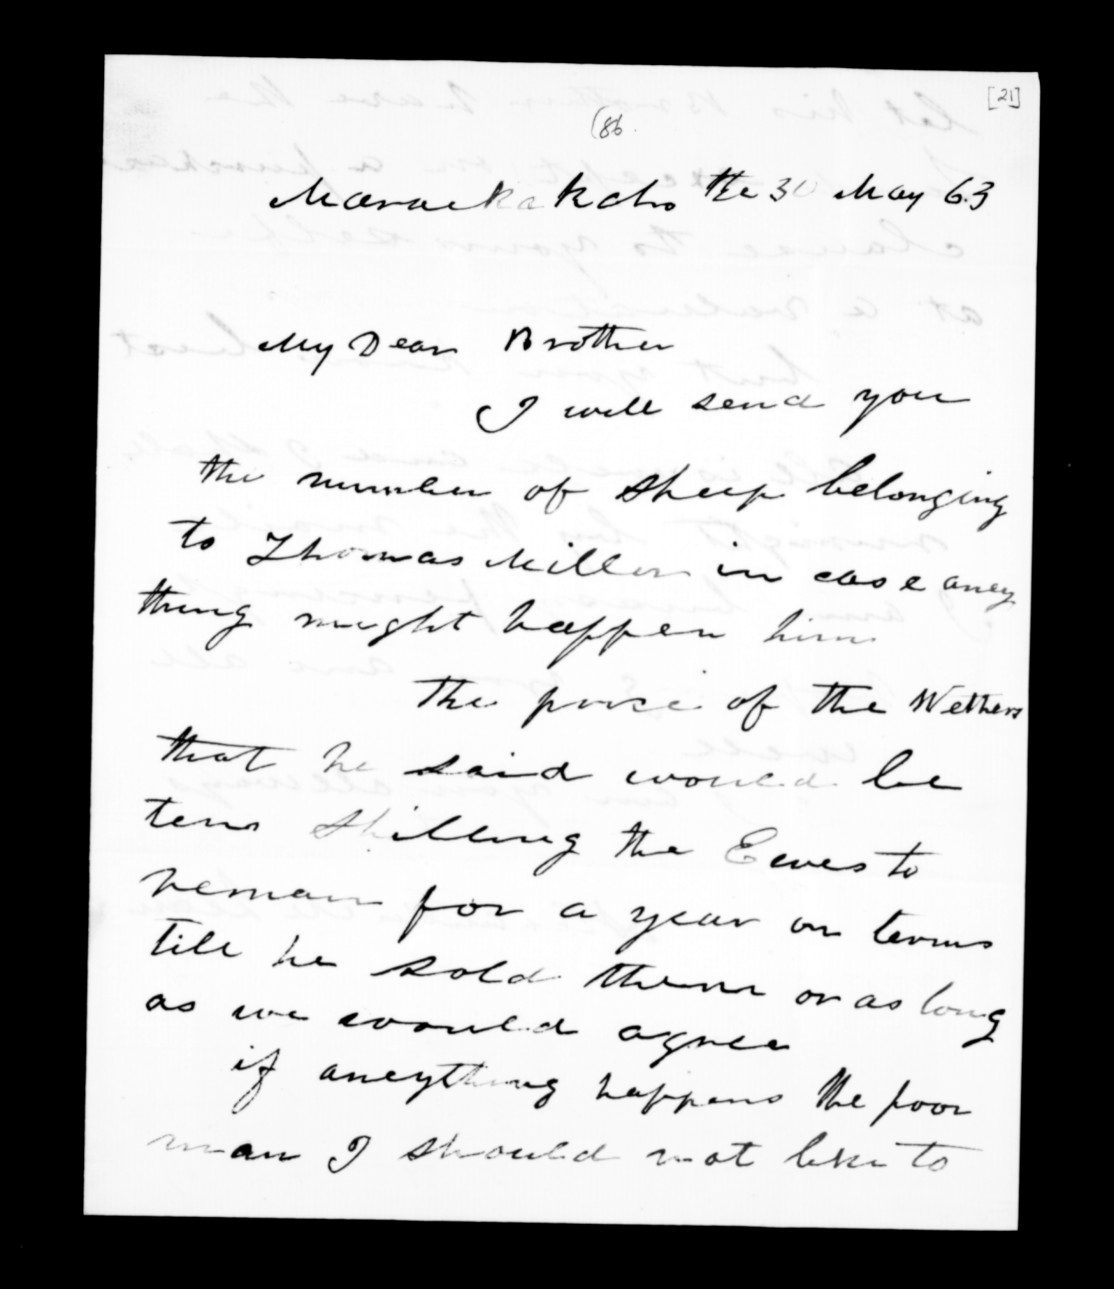 [21]
(86.
Maraekakaho the 30 May 63
My Dear Brother
I will send you
the number of sheep belonging
to Thomas Miller in case aney
thing might happen him
the prise of the Wethers
that he said would be
tenn Shilling the Eewes to
reman for a year on terms
till he sold themm or as long
as we would agree
if aneything happens the poor
man I should not like to